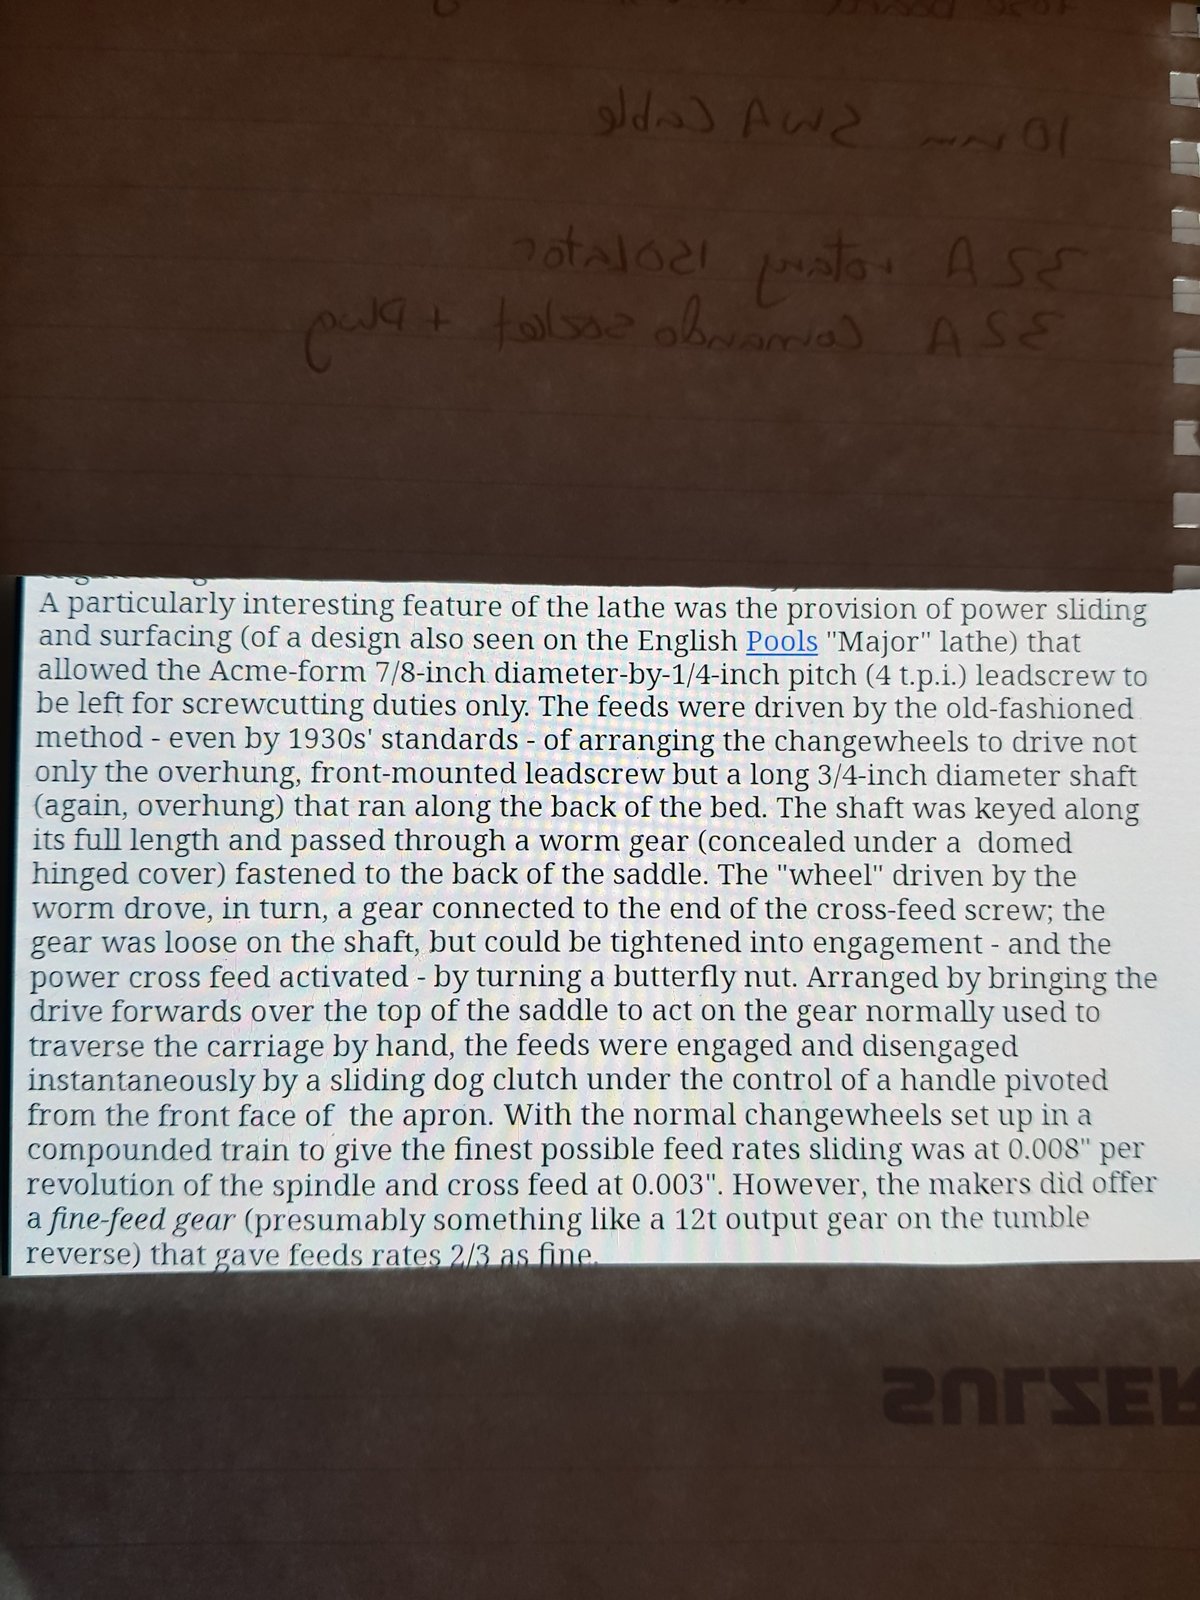 10 mm SWA Cable
32 A rotary isolator
32 A Comando socket + Plug
A particularly interesting feature of the lathe was the provision of power sliding
and surfacing (of a design also seen on the English Pools "Major" lathe) that
allowed the Acme-form 7/8-inch diameter-by-1/4-inch pitch (4 t.p.i.) leadscrew to
be left for screwcutting duties only. The feeds were driven by the old-fashioned
method - even by 1930s' standards - of arranging the changewheels to drive not
only the overhung, front-mounted leadscrew but a long 3/4-inch diameter shaft
(again, overhung) that ran along the back of the bed. The shaft was keyed along
its full length and passed through a worm gear (concealed under a  domed
hinged cover) fastened to the back of the saddle. The "wheel" driven by the
worm drove, in turn, a gear connected to the end of the cross-feed screw; the
gear was loose on the shaft, but could be tightened into engagement - and the
power cross feed activated - by turning a butterfly nut. Arranged by bringing the
drive forwards over the top of the saddle to act on the gear normally used to
traverse the carriage by hand, the feeds were engaged and disengaged
instantaneously by a sliding dog clutch under the control of a handle pivoted
from the front face of  the apron. With the normal changewheels set up in a
compounded train to give the finest possible feed rates sliding was at 0.008" per
revolution of the spindle and cross feed at 0.003". However, the makers did offer
a fine-feed gear (presumably something like a 12t output gear on the tumble
reverse) that gave feeds rates 2/3 as fine.
SULZER